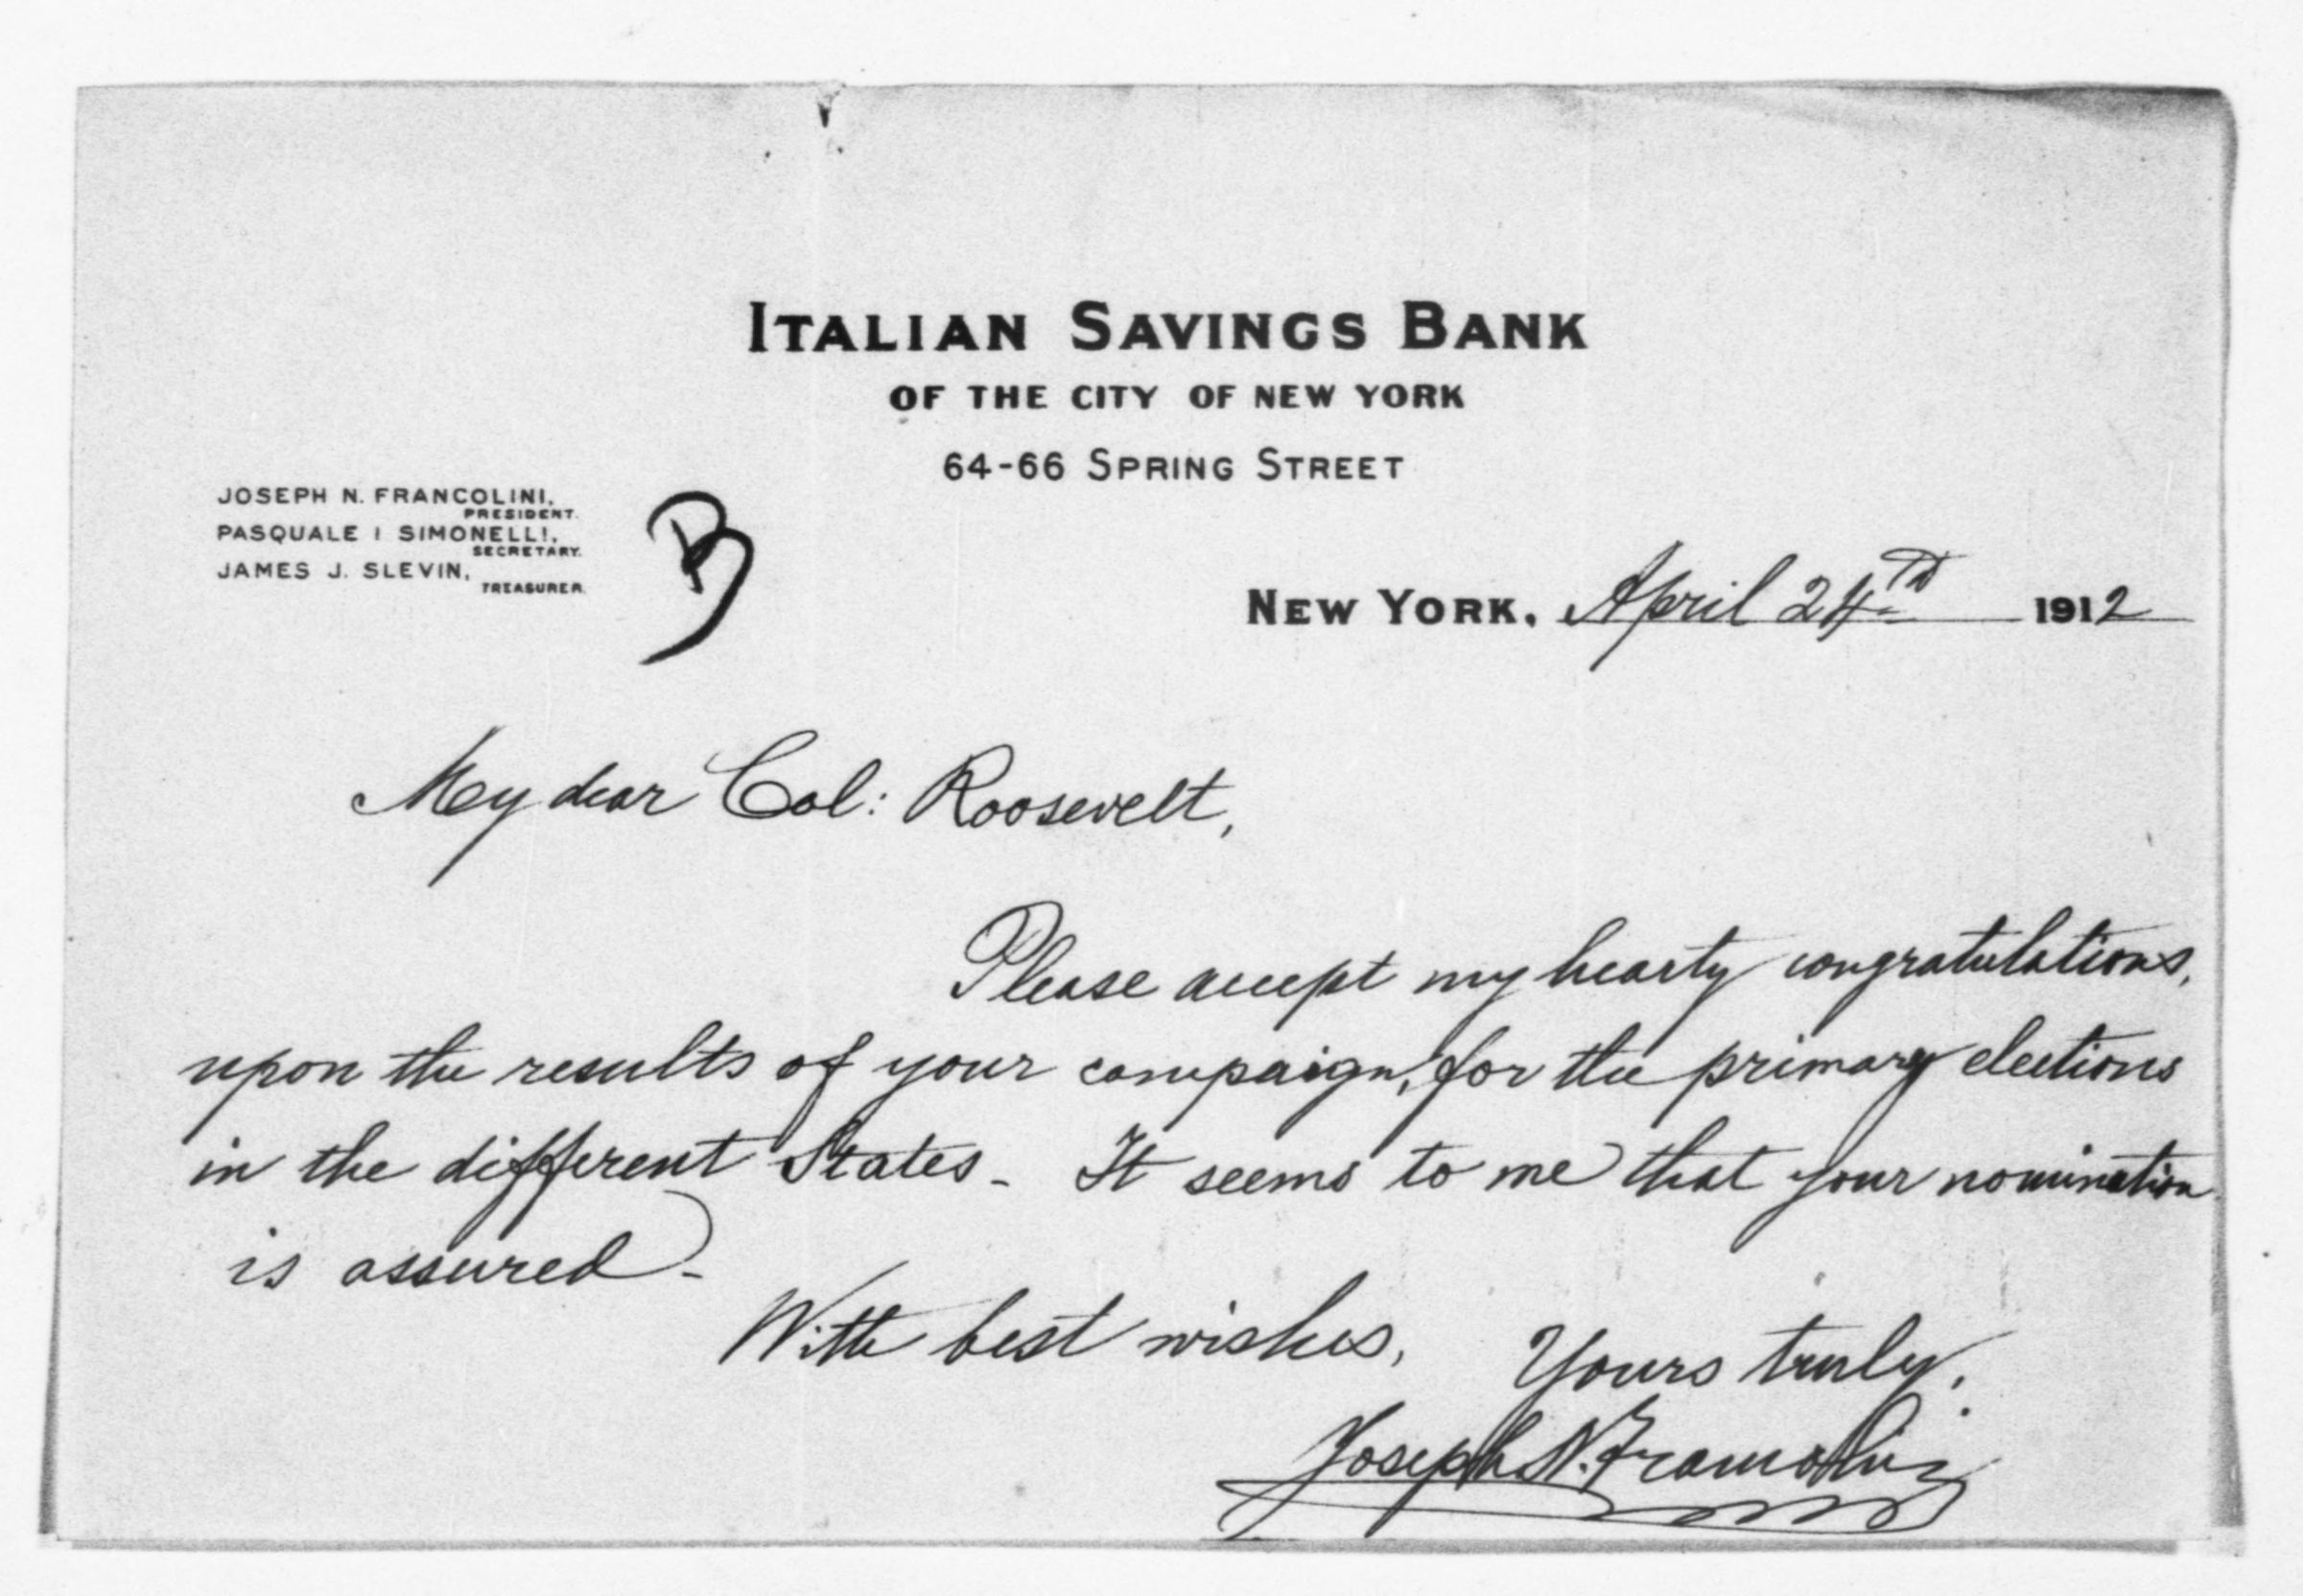 ITALIAN SAVINGS BANK
OF THE CITY OF NEW YORK
64-66 SPRING STREET
JOSEPH N. FRANCOLINI,
PRESIDENT.
PASQUALE I SIMONELLI,
SECRETARY.
JAMES J. SLEVIN,
TREASURER.
B
NEW YORK, April 24th 1912
My dear Col: Roosevelt,
Please accept my hearty congratulations,
upon the results of your campaign, for the primary elections
in the different States - It seems to me that your nomination
is assured -
With best wishes, Yours truly,
Joseph N. Francolini